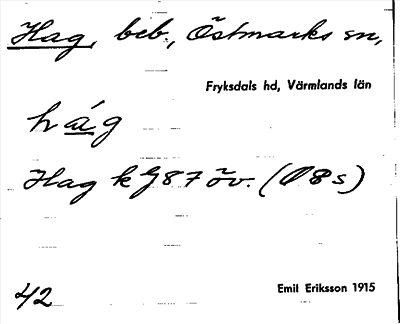 Hag, beb., Östmarks sn,
Fryksdals hd, Värmlands län
håg
Hag k G 87 öv. (Ø 8 s)
42
Emil Eriksson 1915